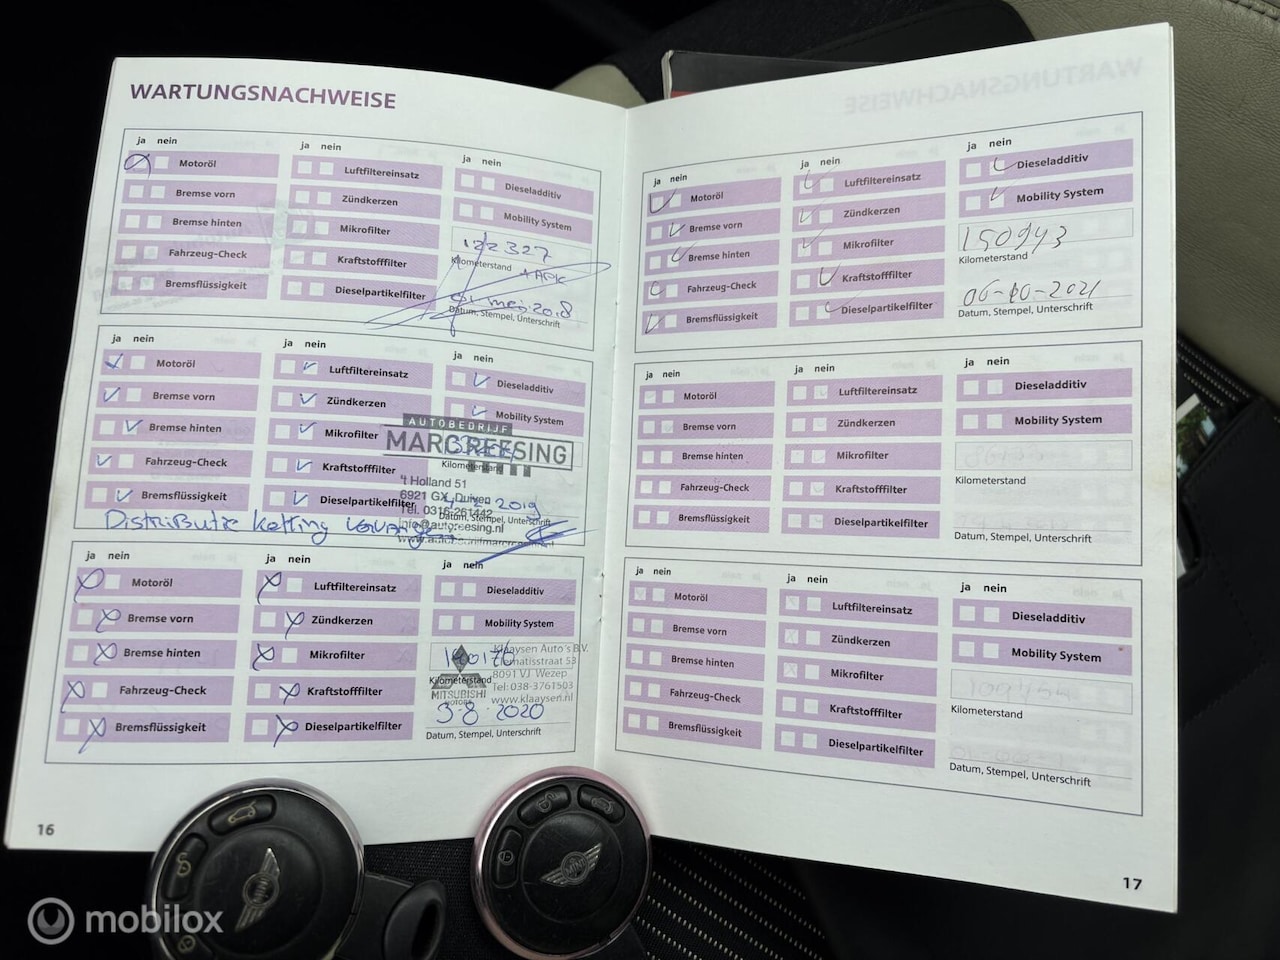 WARTUNGSNACHWEISE
ja nein
Motoröl
Bremse vorn
Bremse hinten
Fahrzeug-Check
Bremsflüssigkeit
ja nein
Luftfiltereinsatz
Zündkerzen
Mikrofilter
Kraftstofffilter
Dieselpartikelfilter
ja nein
Dieseladditiv
Mobility System
122327
Kilometerstand
+ APK
01 mei 2018
Datum, Stempel, Unterschrift
ja nein
Motoröl
Bremse vorn
Bremse hinten
Fahrzeug-Check
Bremsflüssigkeit
ja nein
Luftfiltereinsatz
Zündkerzen
Mikrofilter
Kraftstofffilter
Dieselpartikelfilter
ja nein
Dieseladditiv
Mobility System
AUTOBEDRIJF
MARCREESING
Kilometerstand
't Holland 51
6921 GX Duiven
Tel. 0316-261442
2019
Datum, Stempel, Unterschrift
info@autoreesing.nl
Distributie ketting
ja nein
Motoröl
Bremse vorn
Bremse hinten
Fahrzeug-Check
Bremsflüssigkeit
ja nein
Luftfiltereinsatz
Zündkerzen
Mikrofilter
Kraftstofffilter
Dieselpartikelfilter
ja nein
Dieseladditiv
Mobility System
140176
Klaaysen Auto's B.V.
Kilometerstand
8091 VJ Wezep
MITSUBISHI
MOTORS
Tel: 038-3761503
www.klaaysen.nl
3-8-2020
Datum, Stempel, Unterschrift
16
ja nein
Motoröl
Bremse vorn
Bremse hinten
Fahrzeug-Check
Bremsflüssigkeit
ja nein
Luftfiltereinsatz
Zündkerzen
Mikrofilter
Kraftstofffilter
Dieselpartikelfilter
ja nein
Dieseladditiv
Mobility System
150943
Kilometerstand
06-10-2021
Datum, Stempel, Unterschrift
ja nein
Motoröl
Bremse vorn
Bremse hinten
Fahrzeug-Check
Bremsflüssigkeit
ja nein
Luftfiltereinsatz
Zündkerzen
Mikrofilter
Kraftstofffilter
Dieselpartikelfilter
ja nein
Dieseladditiv
Mobility System
Kilometerstand
Datum, Stempel, Unterschrift
ja nein
Motoröl
Bremse vorn
Bremse hinten
Fahrzeug-Check
Bremsflüssigkeit
ja nein
Luftfiltereinsatz
Zündkerzen
Mikrofilter
Kraftstofffilter
Dieselpartikelfilter
ja nein
Dieseladditiv
Mobility System
Kilometerstand
Datum, Stempel, Unterschrift
17
MINI
MINI
mobilox